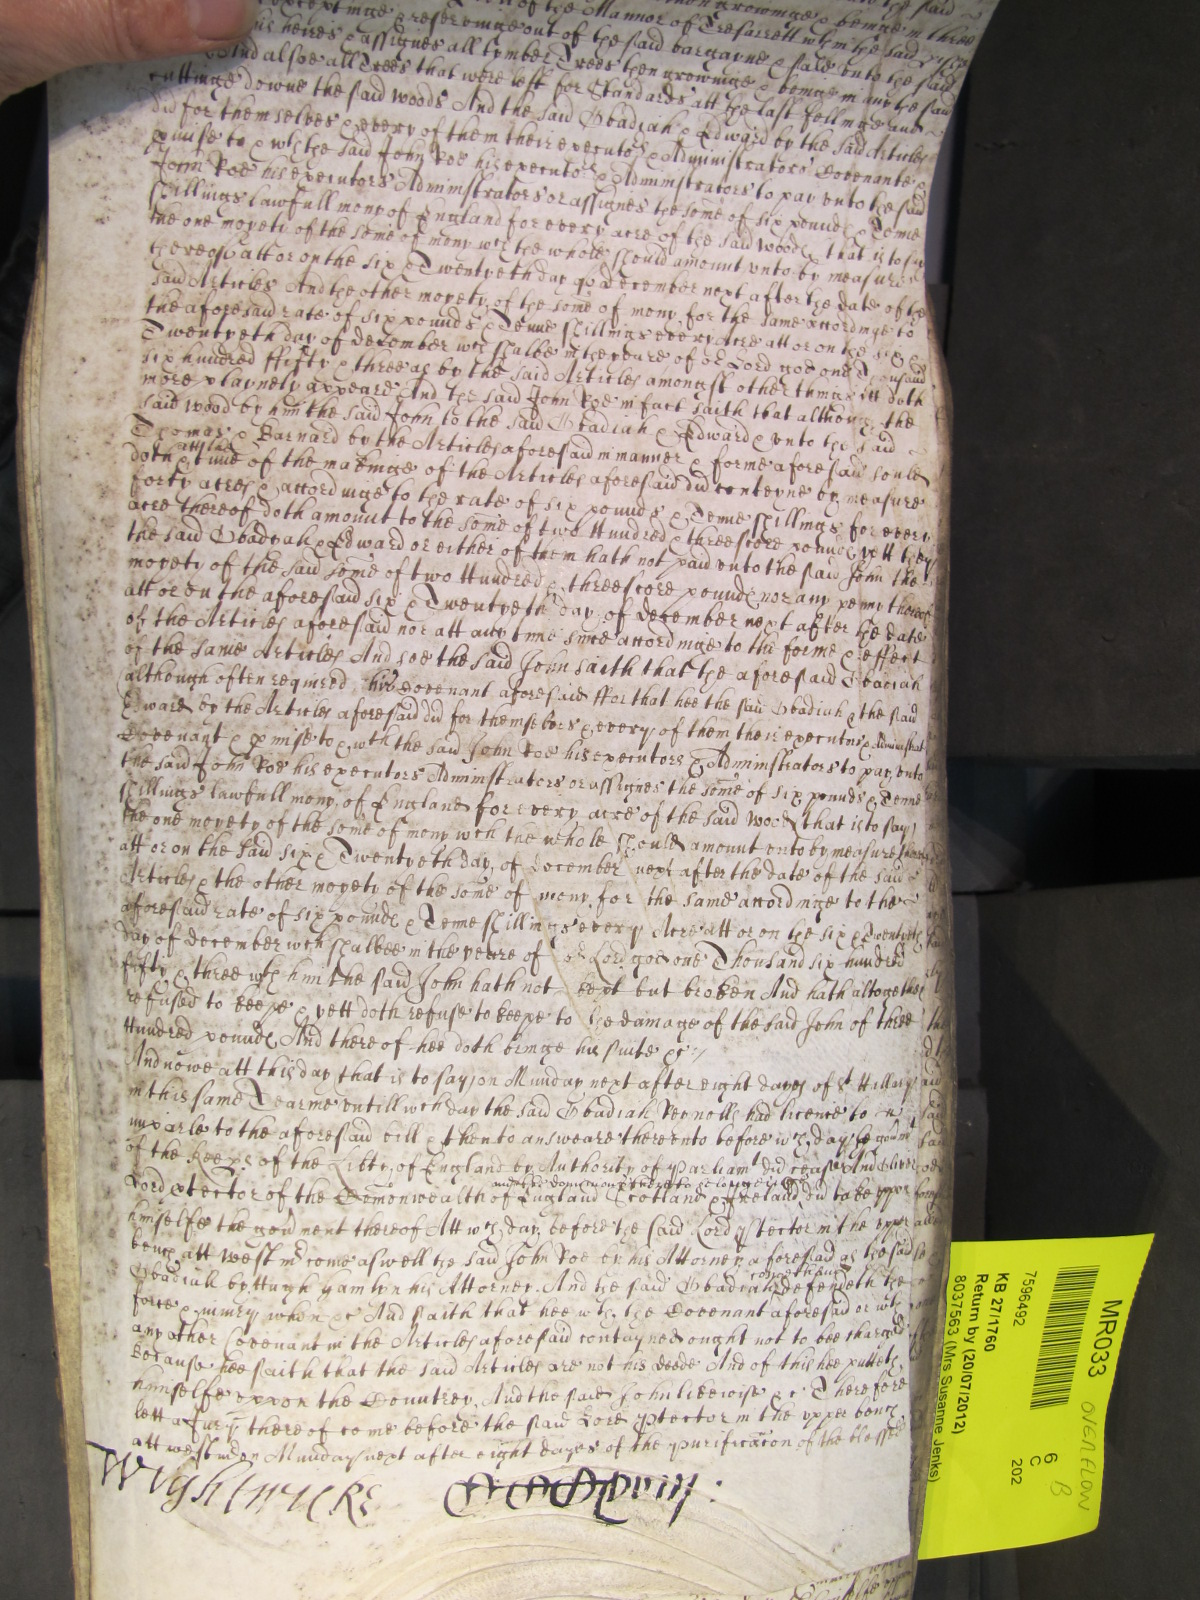 exceptinge & reserveinge out of the said bargayne & sale unto the said
his heires & assignes all tymber Trees then growinge & beinge in any the said
And alsoe all Trees that were left for Standards att the last fellinge and
cuttinge downe the said woods And the said Obadiah & Edward by the said Articles
did for themselves & every of them their executors & Administrators Covenante &
pmise to & wth the said John Roe his executors & Administrators to pay unto the said
John Roe his executors Administrators or assignes the some of six pounds & Tenne
shillings lawfull mony of England for every acre of the said woods that is to say
the one moyety of the some of mony wch the whole should amount unto by measure
thereof att or on the six & Twentyeth day of December next after the date of the
said Articles And the other moyety of the some of mony for the same accordinge to
the aforesaid rate of six pounds & Tenne shillings every acre att or on the six &
Twentyeth day of december wch shalbe in the yeare of or Lord god one Thousand
six hundred fifty & three as by the said Articles amongst other things itt doth
more playnely appeare And the said John Roe in fact saith that although the
said wood by him the said John to the said Obadiah & Edward & unto the said
Thomas & Barnard by the Articles aforesaid in manner & forme aforesaid sould
doth & att the time of the makinge of the Articles aforesaid did conteyne by measure
forty acres & accordinge to the rate of six pounds & Tenne shillings for every
acre thereof doth amount to the some of two Hundred & threescore pounds yett they
the said Obadiah & Edward or either of them hath not paid unto the said John the
moyety of the said some of two Hundred & threescore pounds nor any penny thereof
att or on the aforesaid six & Twentyeth day of december next after the date
of the Articles aforesaid nor att any time since accordinge to the forme & effect
of the same Articles And soe the said John saith that the aforesaid Obadiah
although often required his Covenant aforesaid ffor that hee the said Obadiah & the said
Edward by the Articles aforesaid did for themselves & every of them their executors & Administrat
Covenant & pmise to & wth the said John Roe his executors & Administrators to pay unto
the said John Roe his executors Administrators or assignes the some of six pounds & Tenne
shillings lawfull mony of England for every acre of the said woods that is to say
the one moyety of the some of mony wch the whole should amount unto by measure
att or on the said six & Twentyeth day of December next after the date of the said
Articles & the other moyety of the some of mony for the same accordinge to the
aforesaid rate of six pounds & Tenne shillings every Acre att or on the six & Twentyeth
day of december wch shalbee in the yeare of or Lord god one Thousand six hundred
fifty & three wth him the said John hath not kept but broken And hath altogether
refused to keepe & yett doth refuse to keepe to the damage of the said John of three
Hundred pounds And thereof hee doth bringe his suite &c
And nowe att this day that is to say on Munday next after eight dayes of St Hillary
in this same Tearme untill wch day the said Obadiah Reynolls had licence to
imparle to the aforesaid bill & then to answeare thereunto before wch day the govmt
of the Keeps of the Libty of England by Authority of Parliamt did cease And Oliver
Lord ptector of the Comonwealth of England Scotland & Ireland and the dominions thereto belonginge did take uppon
himselfe the govmt thereof Att wch day before the said Lord ptector in the upper
bench att Westm come aswell the said John Roe by his Attorney aforesaid as the said
Obadiah by Hugh Hamlyn his Attorney And the said Obadiah defendeth the
force & iniury when &c And saith that hee wth the Covenant aforesaid or wth
any other Covenant in the Articles aforesaid contayned ought not to bee charged
because hee saith that the said Articles are not his deede And of this hee putteth
himselfe uppon the Countrey And the said John likewise &c Therefore
lett a Jury thereof come before the said Lord ptector in the upper bench
att westm on Munday next after eight dayes of the purificacon of the blessed
Wightwicke
MR033
OVERFLOW
6
B
C
202
7596492
KB 27/1760
Return by (20/07/2012)
8037563 (Mrs Susanne Jenks)